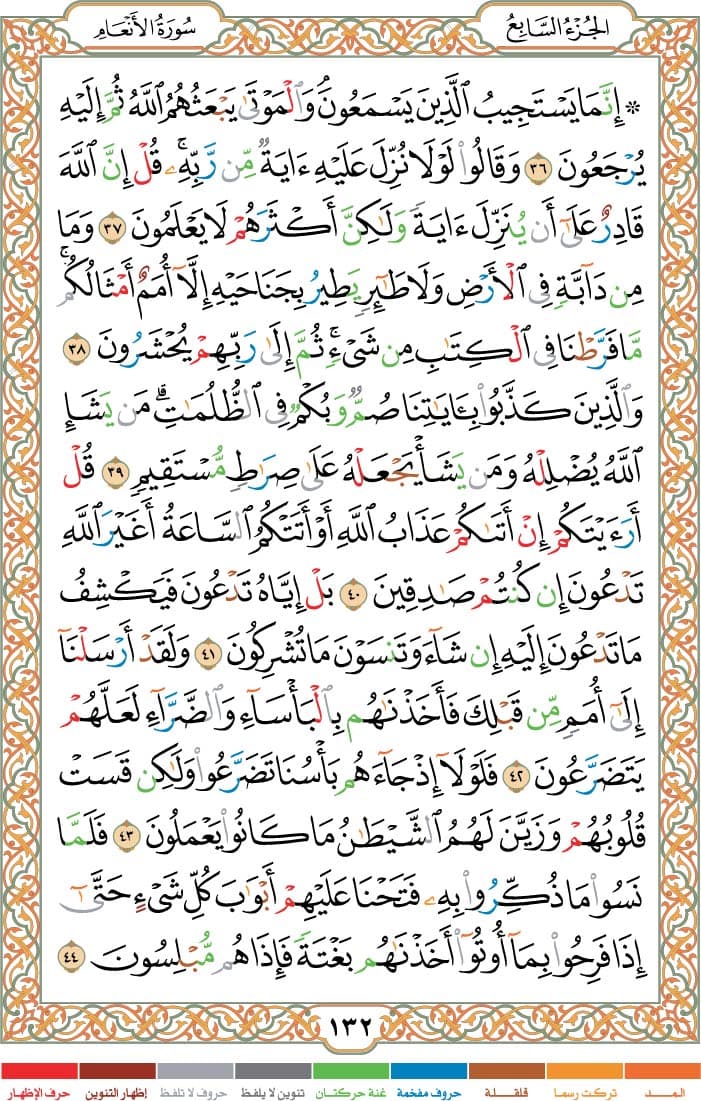 الجُزْءُ السَّابِعُ
سُورَةُ الأَنْعَامِ
۞ إِنَّمَا يَسْتَجِيبُ ٱلَّذِينَ يَسْمَعُونَۘ وَٱلْمَوْتَىٰ يَبْعَثُهُمُ ٱللَّهُ ثُمَّ إِلَيْهِ
يُرْجَعُونَ ٣٦ وَقَالُوا۟ لَوْلَا نُزِّلَ عَلَيْهِ ءَايَةٌ مِّن رَّبِّهِۦۚ قُلْ إِنَّ ٱللَّهَ
قَادِرٌ عَلَىٰٓ أَن يُنَزِّلَ ءَايَةً وَلَٰكِنَّ أَكْثَرَهُمْ لَا يَعْلَمُونَ ٣٧ وَمَا
مِن دَآبَّةٍ فِى ٱلْأَرْضِ وَلَا طَٰٓئِرٍ يَطِيرُ بِجَنَاحَيْهِ إِلَّآ أُمَمٌ أَمْثَالُكُمۚ
مَّا فَرَّطْنَا فِى ٱلْكِتَٰبِ مِن شَىْءٍۚ ثُمَّ إِلَىٰ رَبِّهِمْ يُحْشَرُونَ ٣٨
وَٱلَّذِينَ كَذَّبُوا۟ بِـَٔايَٰتِنَا صُمٌّ وَبُكْمٌ فِى ٱلظُّلُمَٰتِۗ مَن يَشَإِ
ٱللَّهُ يُضْلِلْهُ وَمَن يَشَأْ يَجْعَلْهُ عَلَىٰ صِرَٰطٍ مُّسْتَقِيمٍ ٣٩ قُلْ
أَرَءَيْتَكُمْ إِنْ أَتَىٰكُمْ عَذَابُ ٱللَّهِ أَوْ أَتَتْكُمُ ٱلسَّاعَةُ أَغَيْرَ ٱللَّهِ
تَدْعُونَ إِن كُنتُمْ صَٰدِقِينَ ٤٠ بَلْ إِيَّاهُ تَدْعُونَ فَيَكْشِفُ
مَا تَدْعُونَ إِلَيْهِ إِن شَآءَ وَتَنسَوْنَ مَا تُشْرِكُونَ ٤١ وَلَقَدْ أَرْسَلْنَآ
إِلَىٰٓ أُمَمٍ مِّن قَبْلِكَ فَأَخَذْنَٰهُم بِٱلْبَأْسَآءِ وَٱلضَّرَّآءِ لَعَلَّهُمْ
يَتَضَرَّعُونَ ٤٢ فَلَوْلَآ إِذْ جَآءَهُم بَأْسُنَا تَضَرَّعُوا۟ وَلَٰكِن قَسَتْ
قُلُوبُهُمْ وَزَيَّنَ لَهُمُ ٱلشَّيْطَٰنُ مَا كَانُوا۟ يَعْمَلُونَ ٤٣ فَلَمَّا
نَسُوا۟ مَا ذُكِّرُوا۟ بِهِۦ فَتَحْنَا عَلَيْهِمْ أَبْوَٰبَ كُلِّ شَىْءٍ حَتَّىٰٓ
إِذَا فَرِحُوا۟ بِمَآ أُوتُوٓا۟ أَخَذْنَٰهُم بَغْتَةً فَإِذَا هُم مُّبْلِسُونَ ٤٤
١٣٢
المـــد تركت رسما قلقـلة حروف مفخمة غنة حركتان تنوين لا يلفظ حروف لا تلفظ إظهار التنوين حرف الإظهار